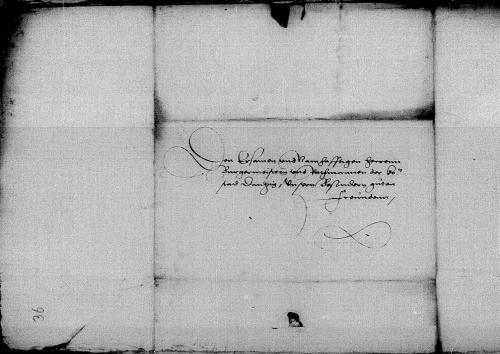 Den Ersamen und Namhafftigen herrenn
Burgermeistern und Rathmannen der
stad Dantzig, Unsern besundern guten
freundenn,
36